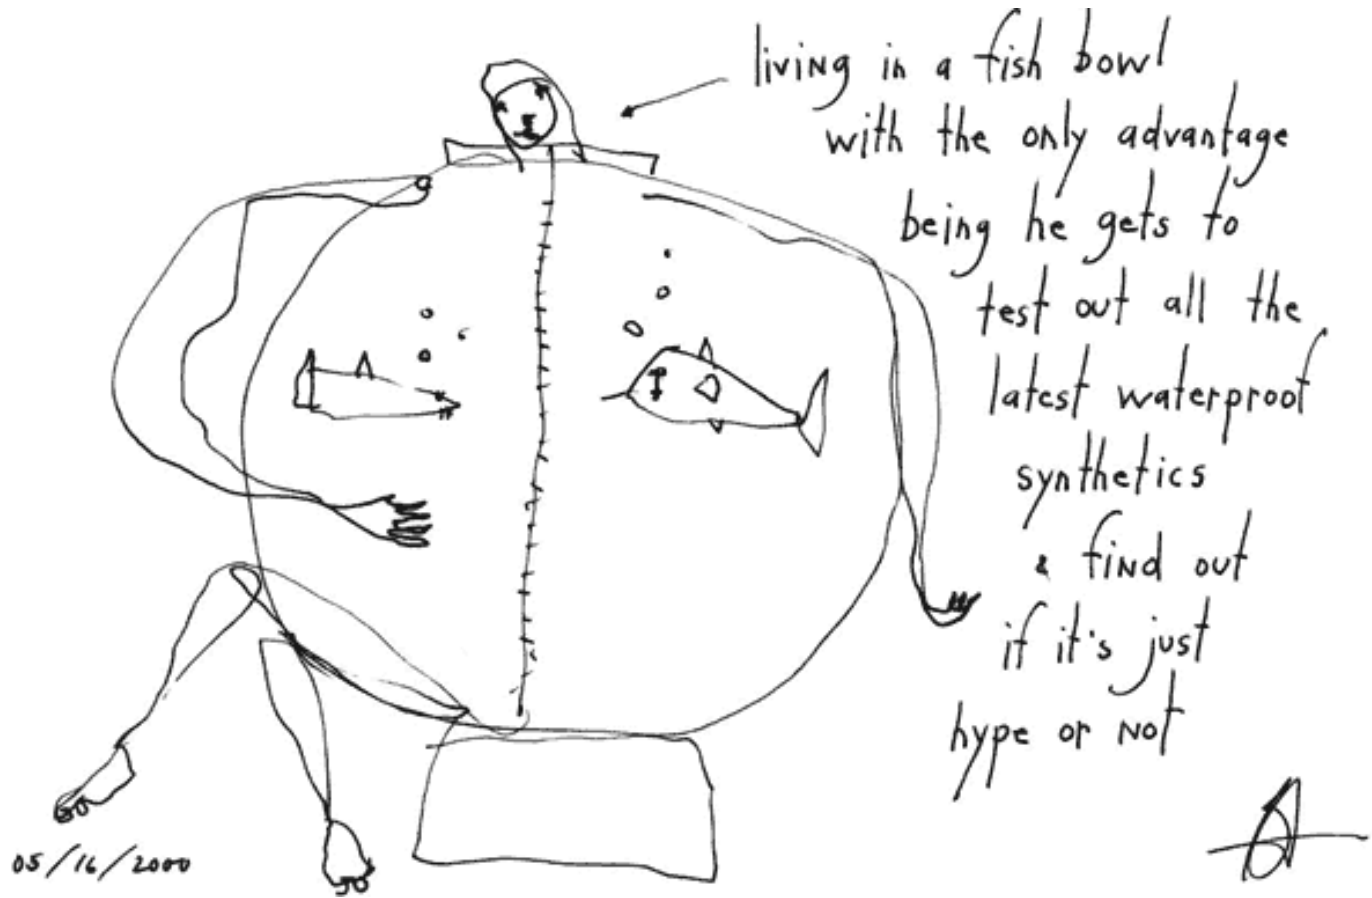 living in a fish bowl
with the only advantage
being he gets to
test out all the
latest waterproof
synthetics
& find out
if it's just
hype or not
05/16/2000